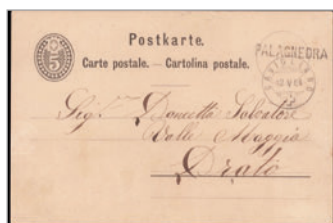 Postkarte.
Carte postale. — Cartolina postale.
5
PALAGNEDRA
Sig.
Donetta Salvatore
Valle Maggia
Prato